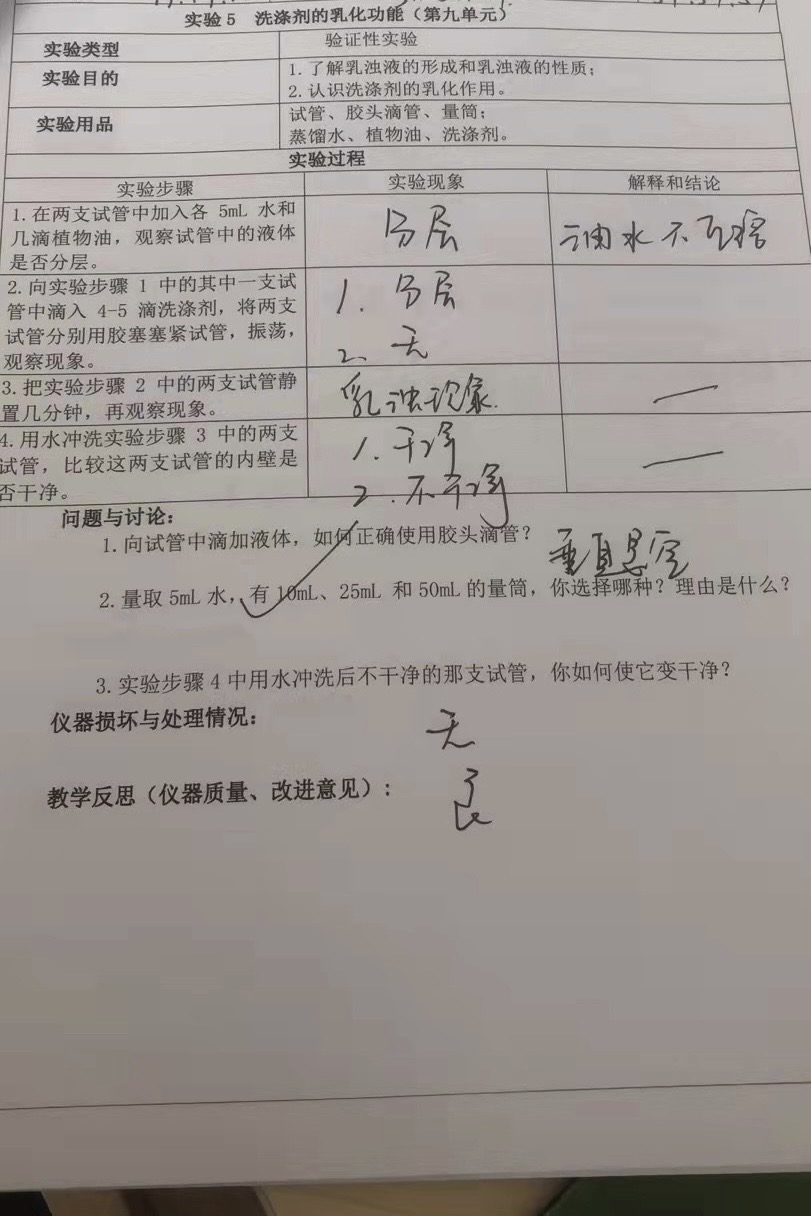 实验5 洗涤剂的乳化功能（第九单元）
实验类型 验证性实验
实验目的 1.了解乳浊液的形成和乳浊液的性质；
2.认识洗涤剂的乳化作用。
实验用品 试管、胶头滴管、量筒；
蒸馏水、植物油、洗涤剂。
实验过程
实验步骤 实验现象 解释和结论
1.在两支试管中加入各 5mL 水和
几滴植物油，观察试管中的液体
是否分层。
分层
油水不互溶
2.向实验步骤 1 中的其中一支试
管中滴入 4-5 滴洗涤剂，将两支
试管分别用胶塞塞紧试管，振荡，
观察现象。
1. 分层
2. 无
3.把实验步骤 2 中的两支试管静
置几分钟，再观察现象。
乳浊现象.
—
4.用水冲洗实验步骤 3 中的两支
试管，比较这两支试管的内壁是
否干净。
1. 干净
2. 不干净
—
问题与讨论：
1.向试管中滴加液体，如何正确使用胶头滴管？ 垂直悬空
2.量取 5mL 水，有 10mL、25mL 和 50mL 的量筒，你选择哪种？理由是什么？
3.实验步骤 4 中用水冲洗后不干净的那支试管，你如何使它变干净？
仪器损坏与处理情况： 无
教学反思（仪器质量、改进意见）： 良